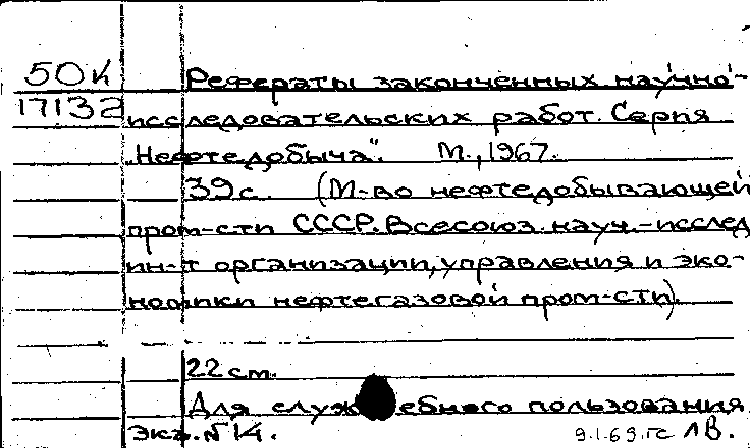 50К Рефераты законченных научно-
17132 исследовательских работ. Серия
"Нефтедобыча". М., 1967.
39 с. (М-во нефтедобывающей
пром-сти СССР. Всесоюз. науч.-исслед.
ин-т организации, управления и эко-
номики нефтегазовой пром-сти).
22 см.
Для служебного пользования
Экз. № 14. 9.1.69. ЛВ.